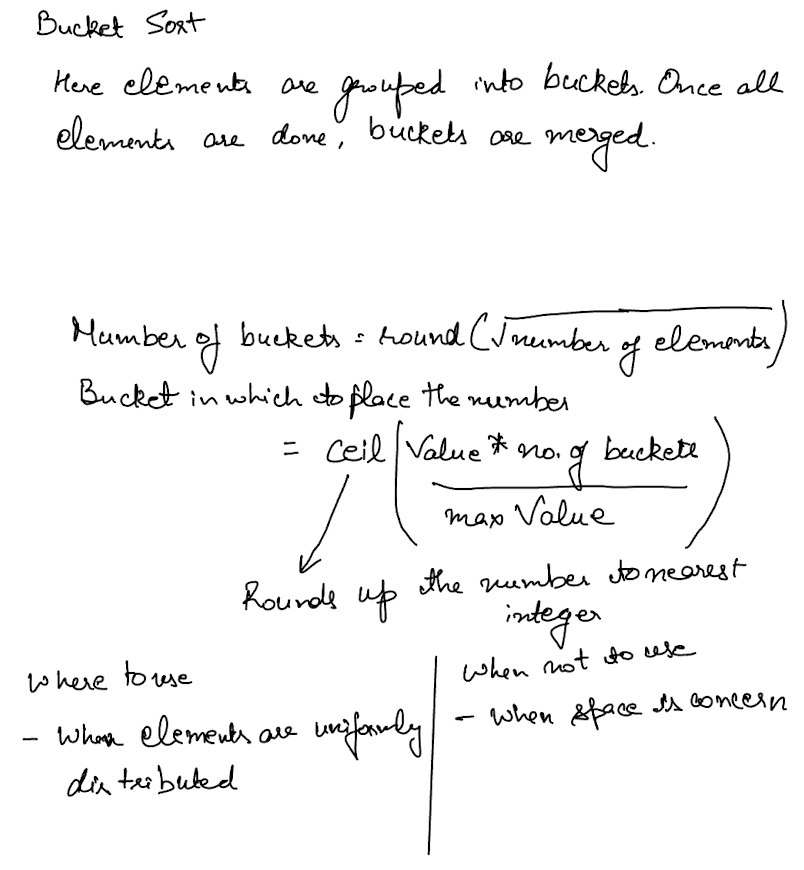 Bucket Sort
Here elements are grouped into buckets. Once all
elements are done, buckets are merged.
Number of buckets = round(√number of elements)
Bucket in which to place the number
= ceil(Value * no. of buckets
max Value)
Rounds up the number to nearest
integer
Where to use
- When elements are uniformly
distributed
When not to use
- When space is concern